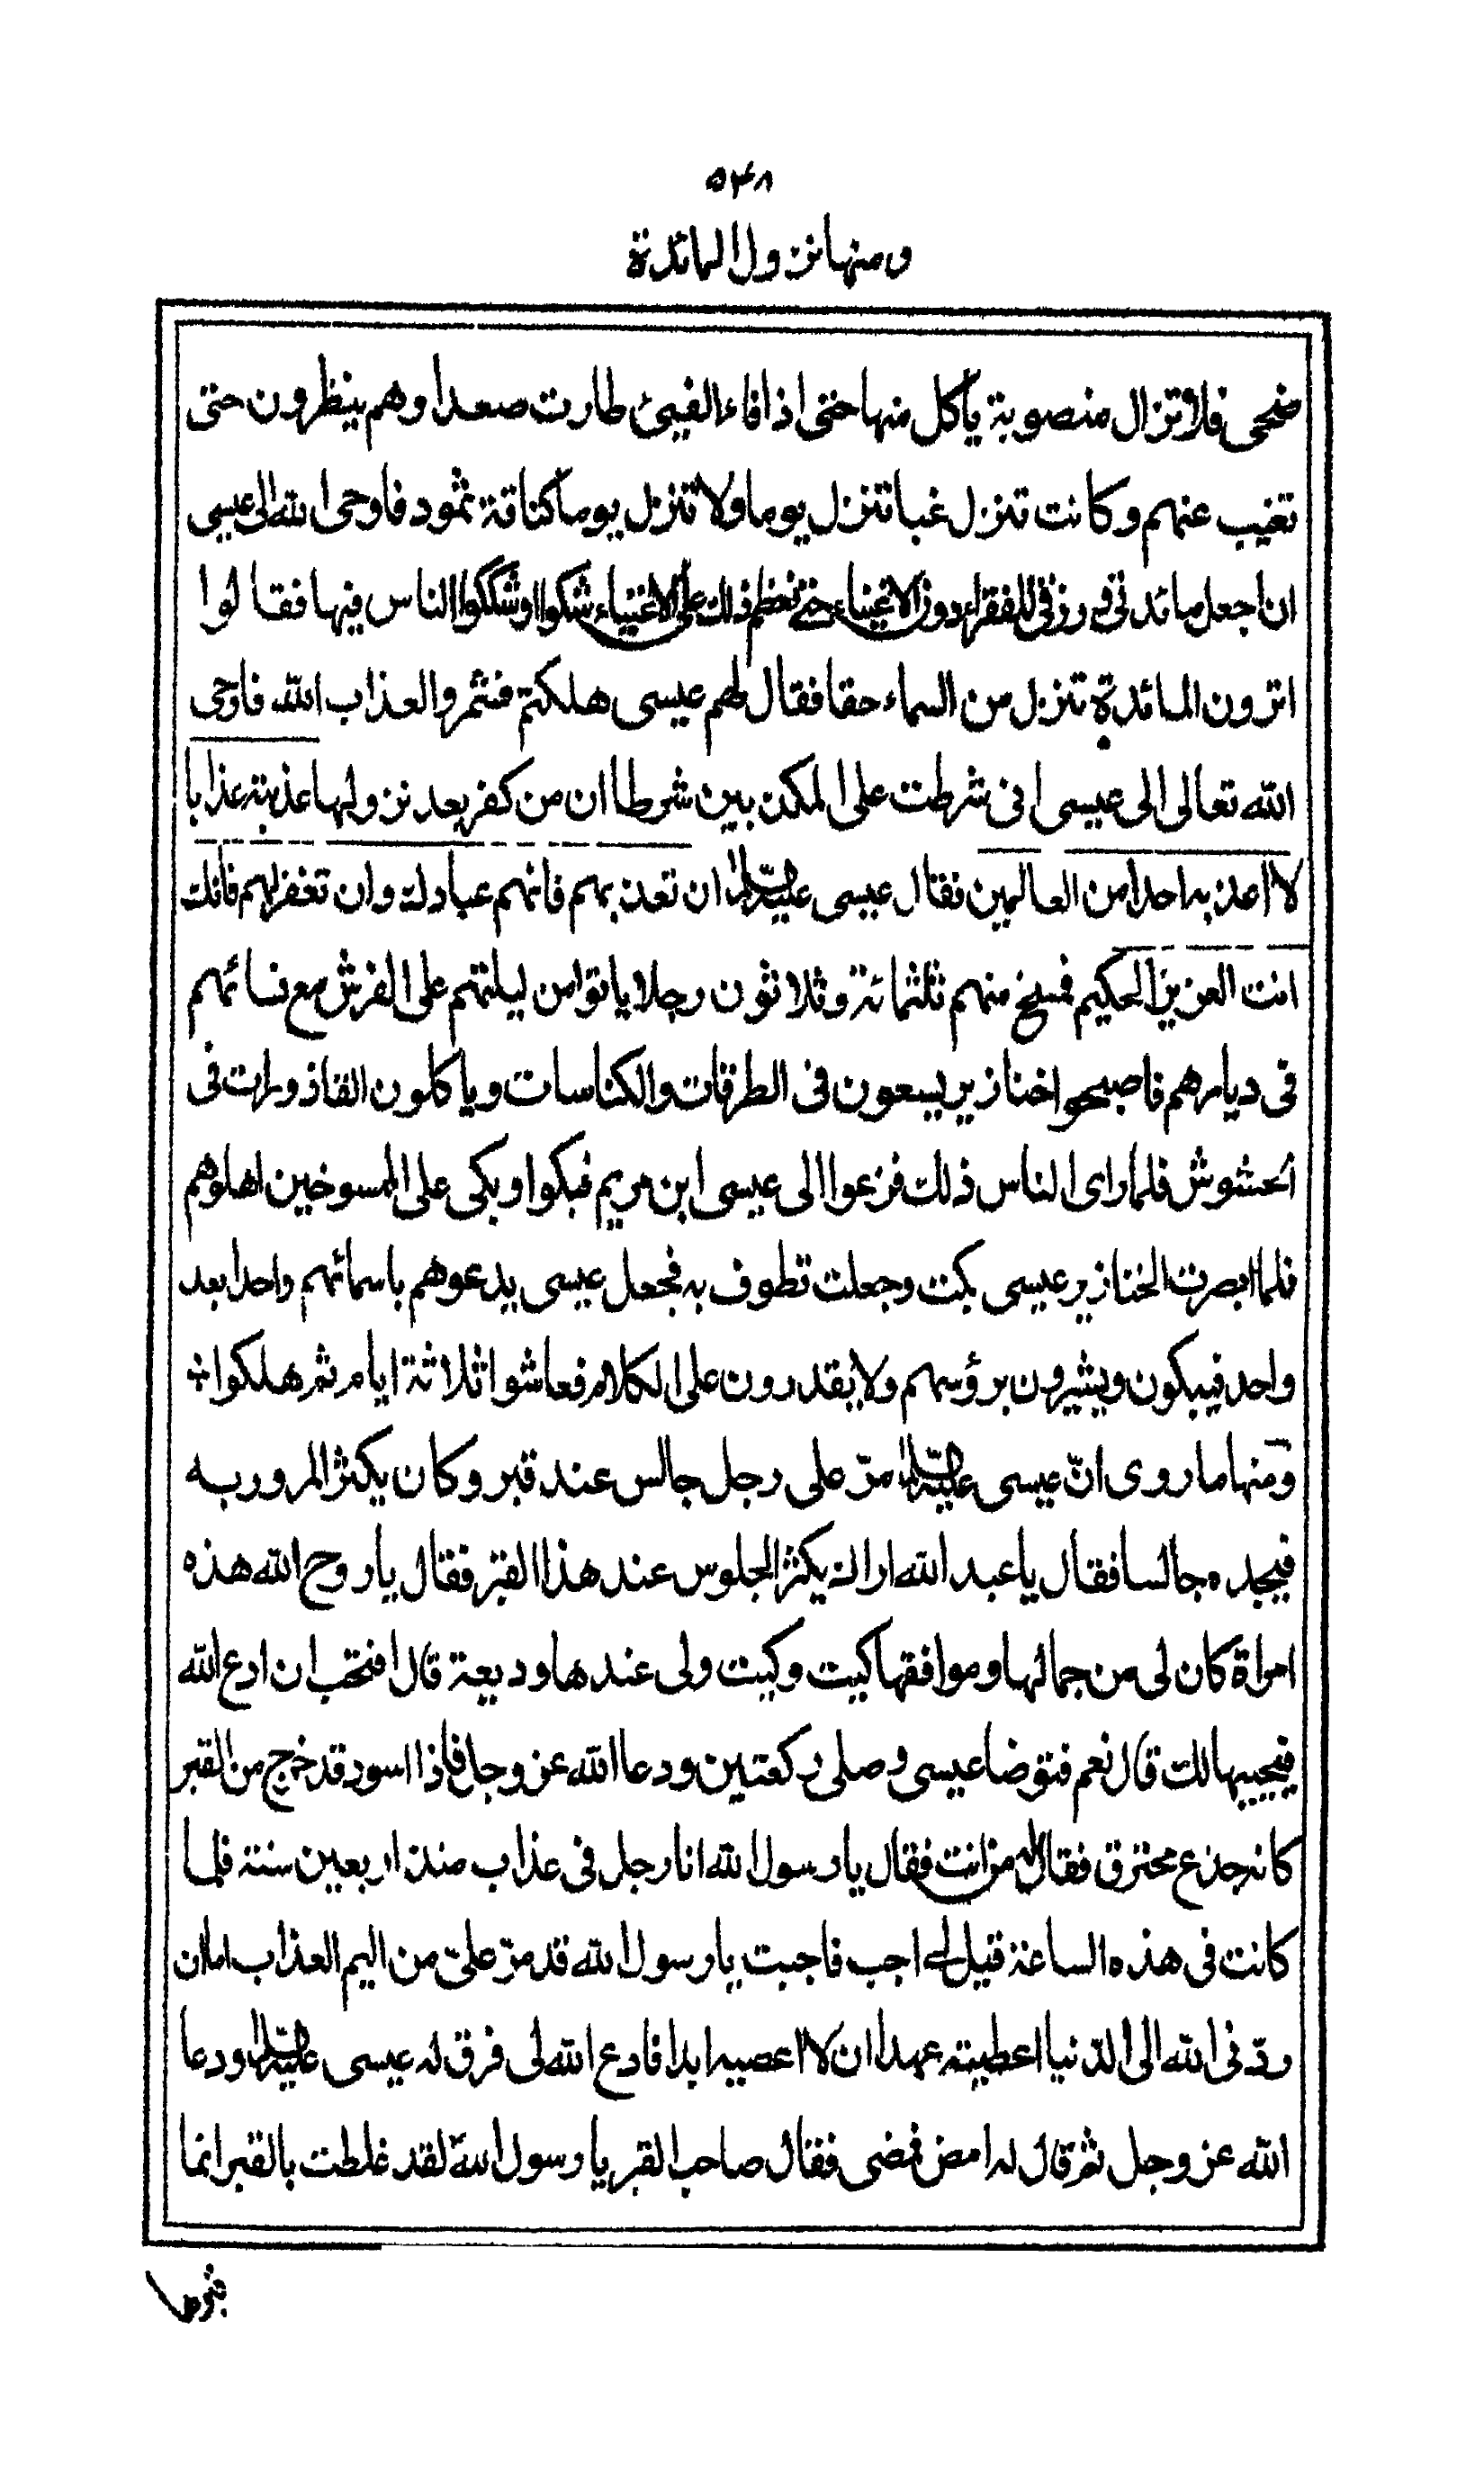 ۵۴۸
ومنها نزول المائدة
ضحى فلا تزال منصوبة يأكل منها حتى اذا فاء الفيئ طارت صعدا وهم ينظرون حتى
تغيب عنهم وكانت تنزل غبا تنزل يوما ولا تنزل يوما كناقة ثمود فاوحى الله الى عيسى
ان اجعل مائدتي ورزقي للفقراء دون الاغنياء حتى تعظم ذلك على الاغنياء شكوا او شككوا الناس فيها فقالوا
اترون المائدة تنزل من السماء حقا فقال لهم عيسى هلكتم فشمروا لعذاب الله فاوحى
الله تعالى الى عيسى انى شرطت على المكذبين شرطا ان من كفر بعد نزولها عذبته عذابا
لا اعذبه احدا من العالمين فقال عيسى عليه السلام ان تعذبهم فانهم عبادك وان تغفر لهم فانك
انت العزيز الحكيم فمسخ منهم ثلثمائة وثلاثون رجلا باتوا من ليلتهم على الفرش مع نسائهم
فى ديارهم فاصبحوا خنازير يسعون فى الطرقات والكناسات وياكلون القاذورات فى
الحشوش فلما راى الناس ذلك فزعوا الى عيسى ابن مريم فبكوا وبكى على الممسوخين اهلوهم
فلما ابصرت الخنازير عيسى بكت وجعلت تطوف به فجعل عيسى يدعوهم باسمائهم واحدا بعد
واحد فيبكون ويشيرون برؤسهم ولا يقدرون على الكلام فعاشوا ثلاثة ايام ثم هلكوا
ومنها ما روى انّ عيسى عليه السلام مرّ على رجل جالس عند قبر وكان يكثر المرور به
فيجده جالسا فقال يا عبد الله اراك يكثر الجلوس عند هذا القبر فقال يا روح الله هذه
امراة كان لى من جمالها وموافقها كيت وكيت ولى عندها وديعة قال افتحب ان ادع الله
فيحييها لك قال نعم فتوضا عيسى وصلى ركعتين ودعا الله عز وجل فاذا اسود قد خرج من القبر
كانه جذع محترق فقال له من انت فقال يا رسول الله انا رجل فى عذاب منذ اربعين سنة فلما
كانت فى هذه الساعة قيل لى اجب فاجبت يا رسول الله قد مرّ علىّ من اليم العذاب ما ان
ردّنى الله الى الدّنيا اعطيته عهدا ان لا اعصيه ابدا فادع الله لى فرق له عيسى عليه السلام ودعا
الله عز وجل ثم قال له امض فمضى فقال صاحب القبر يا رسول الله لقد غلطت بالقبر انما